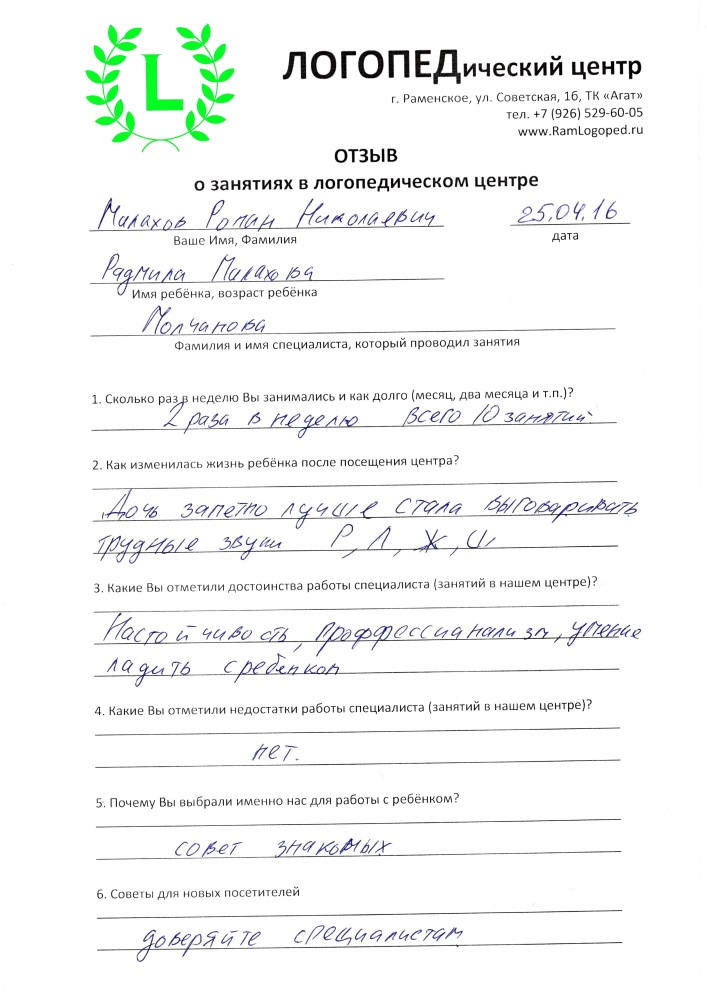 L
ЛОГОПЕДический центр
г. Раменское, ул. Советская, 1б, ТК «Агат»
тел. +7 (926) 529-60-05
www.RamLogoped.ru
ОТЗЫВ
о занятиях в логопедическом центре
Малахов Роман Николаевич 25.04.16
Ваше Имя, Фамилия дата
Радмила Малахова
Имя ребёнка, возраст ребёнка
Молчанова
Фамилия и имя специалиста, который проводил занятия
1. Сколько раз в неделю Вы занимались и как долго (месяц, два месяца и т.п.)?
2 раза в неделю всего 10 занятий.
2. Как изменилась жизнь ребёнка после посещения центра?
Дочь заметно лучше стала выговаривать
трудные звуки Р, Л, Ж, Ш
3. Какие Вы отметили достоинства работы специалиста (занятий в нашем центре)?
Настойчивость, проффессионализм, умение
ладить с ребёнком
4. Какие Вы отметили недостатки работы специалиста (занятий в нашем центре)?
нет.
5. Почему Вы выбрали именно нас для работы с ребёнком?
совет знакомых
6. Советы для новых посетителей
доверяйте специалистам